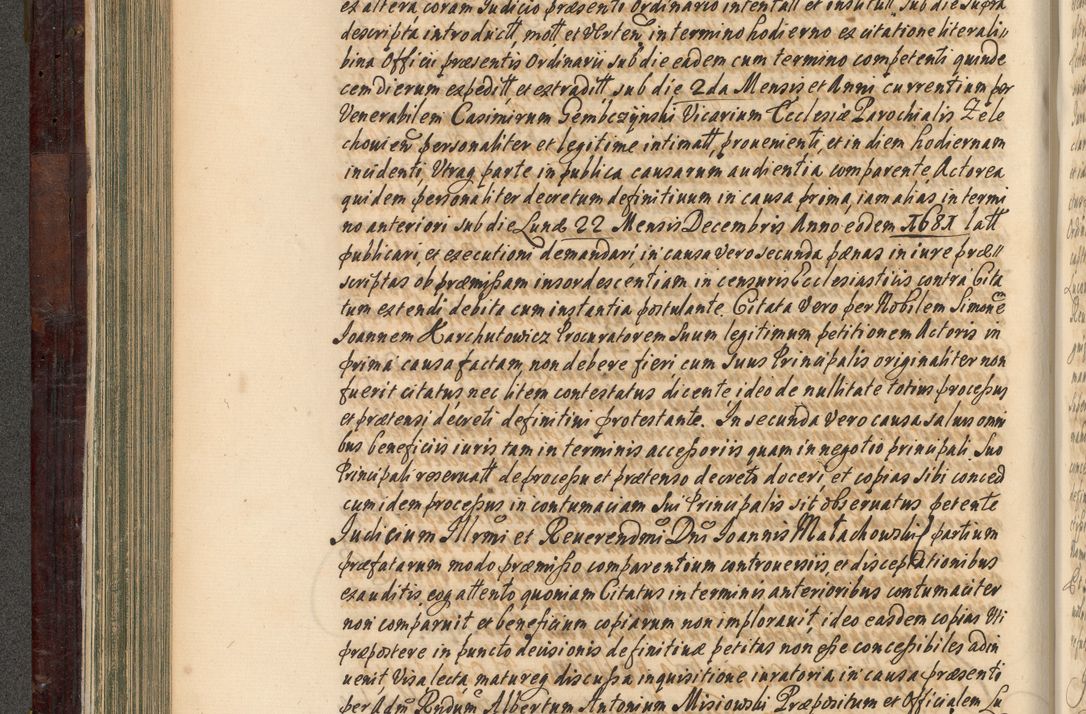 ex altera coram Judicio præsenti Ordinario intentatt et institutt sub die supra
descripta introductt, mott et Verten, in termino hodierno ex citatione literali
bina Officii præsentis Ordinarii sub die eadem cum termino competenti quinde
cem dierum expeditt, et extraditt, sub die 2da Mensis et Anni currentium per
Venerabilem Casimirum Gembczynski Vicarium Ecclesiæ Parochialis Zele
chovien personaliter et legitime intimatt, provenienti, et in diem hodiernam
incidenti, Utraq parte in publica causarum audientia comparente, Actorea
quidem personaliter decretum definitivum in causa prima, iam alias in termi
no anteriori sub die Lunæ 22 Mensis Decembris Anno eodem 1681 latt
publicari, et executioni demandari, in causa vero secunda pænas in iure præ
scriptas ob præmissam insordescentiam in censuris Ecclesiasticis contra Cita
tum extendi debita cum instantia postulante. Citata Vero per Nobilem Simonē
Joannem Karchutowicz Procuratorem Suum legitimum petitionem Actoris in
prima causa factam, non debere fieri cum Suus Principalis originaliter non
fuerit citatus nec litem contestatus dicente, ideo de nullitate totius processus
et prætensi decreti definitivi protestante. In secunda Vero causa salvis omni
bus beneficiis iuris tam in terminis accessoriis quam in negotio principali Suo
Principali reservatt de processu et prætenso decreto doceri, et copias sibi conced
cum idem processus in contumaciam Sui Principalis sit observatus petente
Judicium Illrmi et Reverendmi Dni Joannis Małachowski partium
præfatarum modo præmisso comparentium controversiis et disceptationibus
exauditis, eoq attento quoniam Citatus in terminis anterioribus contumaciter
non comparuit et beneficium copiarum non imploravit, ideo easdem copias Uti
præpostere in puncto decisionis definitivæ petitas non esse concessibiles adin
venit Visa lecta, matureq discussa inquisitione iuratoria in causa præsenti
per Adm Rndum Albertum Antonium Misiowski Præpositum et Officialem Lu